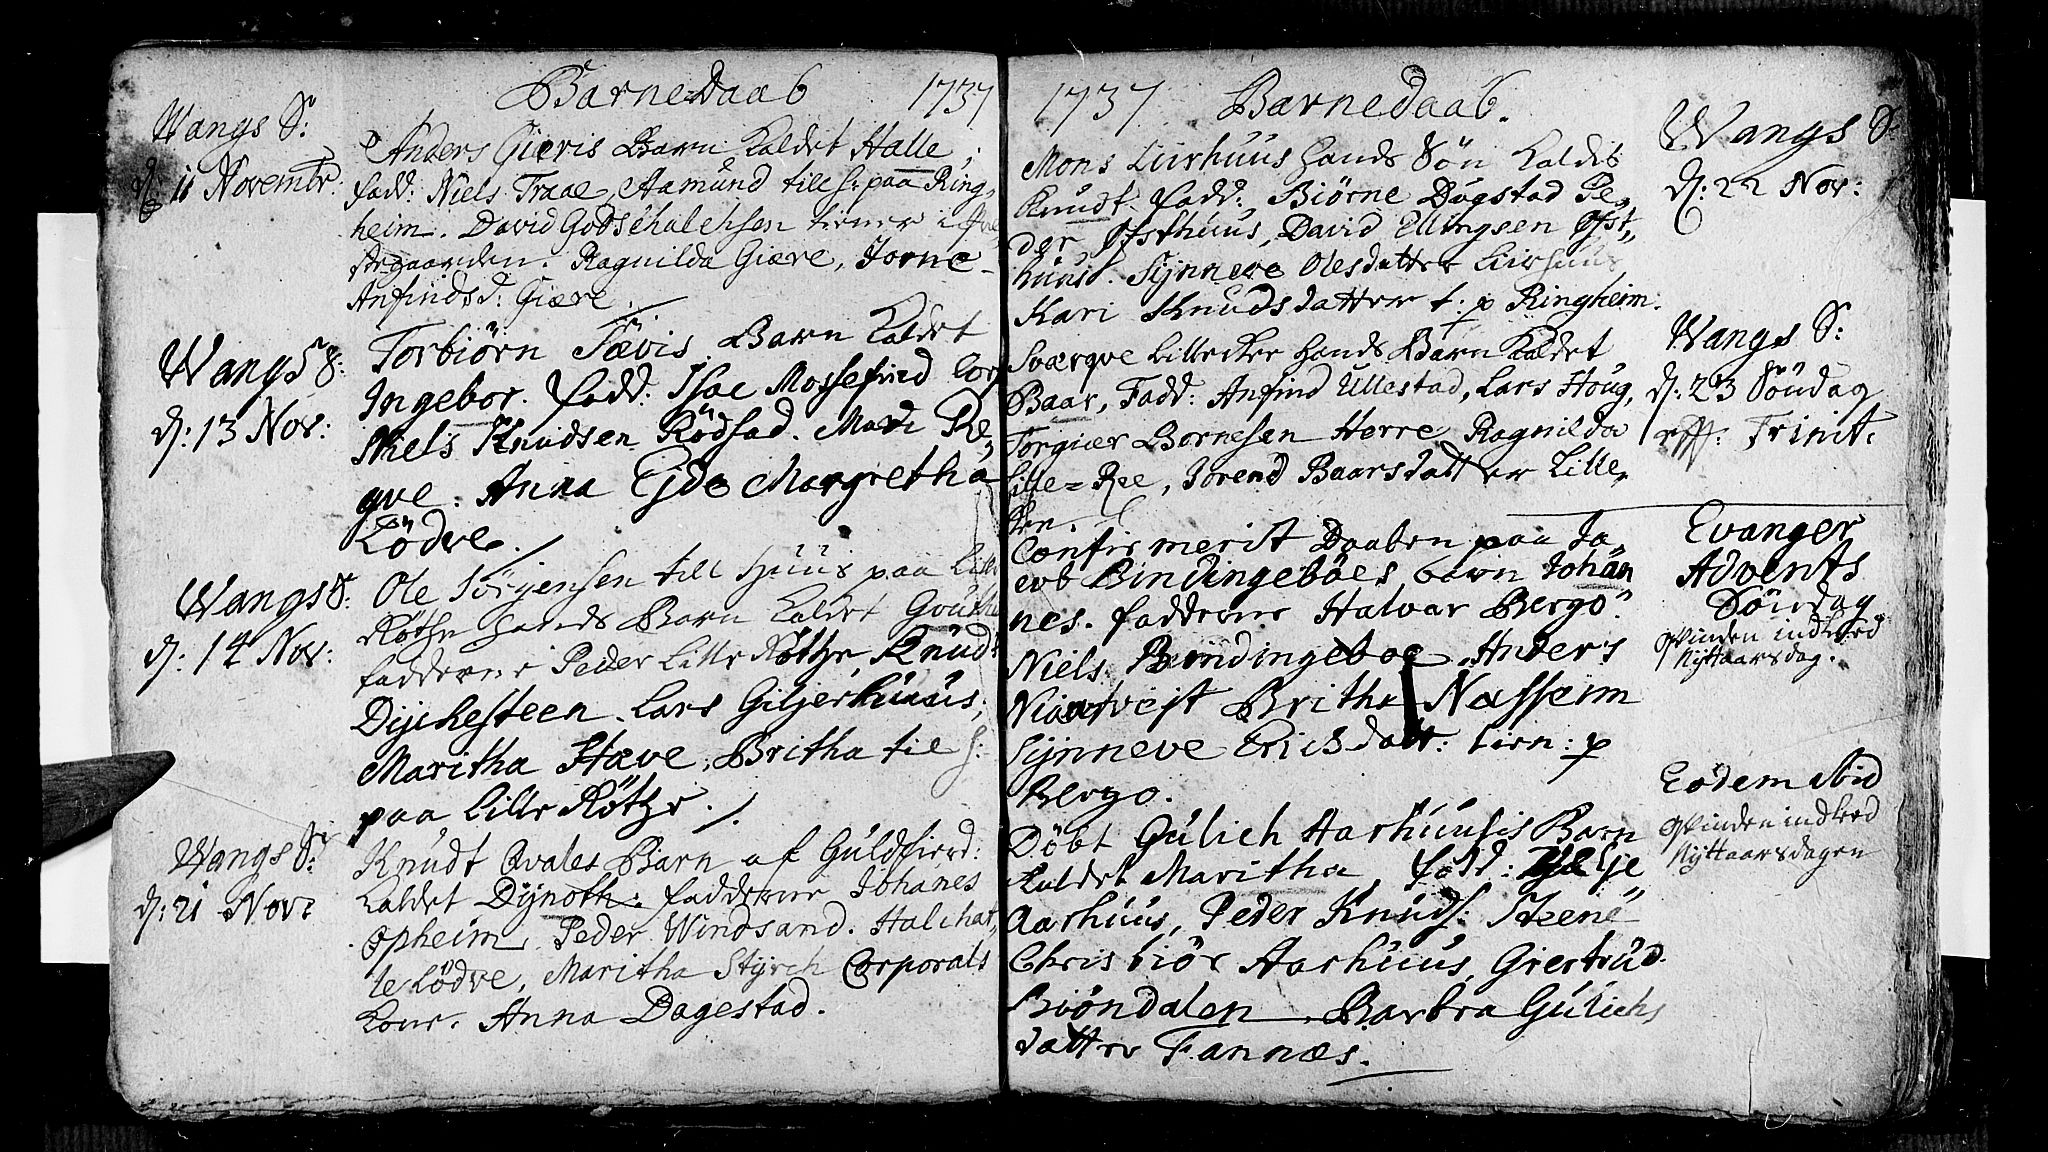 Barne=Daab 1737
Wangs S:
d: 11 Novembr.
Anders Gieris Barn kaldet Halle,
fadd: Niels Traae, Aamund till h: paa Ring,
heim. David Godschalchsen tiener i Præ,
stegaarden. Ragnilda Giære, Jorne
Anfindsd: Giære.
Wangs S:
d: 13 Nov:
Torbiörn Tævis Barn kaldet
Ingebor. fadd: Isac Mossefind Corp
Niels Knudsen Rödstad. Mari Re,
qve. Anna Eide Margretha
Lödve.
Wangs S:
d: 14 Nov:
Ole Törjensen till Huus paa Lille
Röthe hands Barn kaldet
fadderne Peder Lille Röthe, Knud
Dyckesteen. Lars Giljerhuuus,
Maritha Stæve, Britha til h:
paa Lille Röthe.
Wangs S:
d: 21 Nov:
Knudt Qvales Barn af Guldfierd:
kaldet Dynoth: fadderne Johanes
Opheim, Peder Windsand. Halchat,
te Lödve, Maritha Styrch Corporals
kone. Anna Dagestad.
1737 Barnedaab.
Wangs S.
d: 22 Nov:
Mons Liirhuus hands Sön kaldet
Knudt. fadd: Biörne Dugstad Pe,
der Østhuus, David Ellingsen Øst,,
huus. Synneve Olesdatter Liirhuus
Kari Knudsdatter t: p Ringheim.
Wangs S:
d: 23 Söndag
eff: Trinit.
Sværqve Lilleker hands Barn kaldet
Baar, Fadd: Anfind Ullestad, Lars Houg,
Torgier Bornesen Herre Ragnilda
Lille=Ree, Jorend Baarsdatter Lille,
ken.
Evanger
Advents
Söndag
Qvinden indleed
Nyttaarsdag.
Confirmerit Daaben paa Ja,
cob Bindingeböes barn Johan
nes. fadderne Halvar Bergo
Niels Bindingeboe Anders
Britha Nassem
Synneve Ericsdatt: tien: p
Bergo.
Eodem Stid
Qvinden indleed
Nyttaarsdagen
Döbt Gulich Aarhuusis Barn
kaldet Maritha, fadd: Helje
Aarhuus, Peder Knuds: Steene
Christiör Aarhuus, Giertrud
Biöndalen, Barbra Gulichs
datter Fannæs.